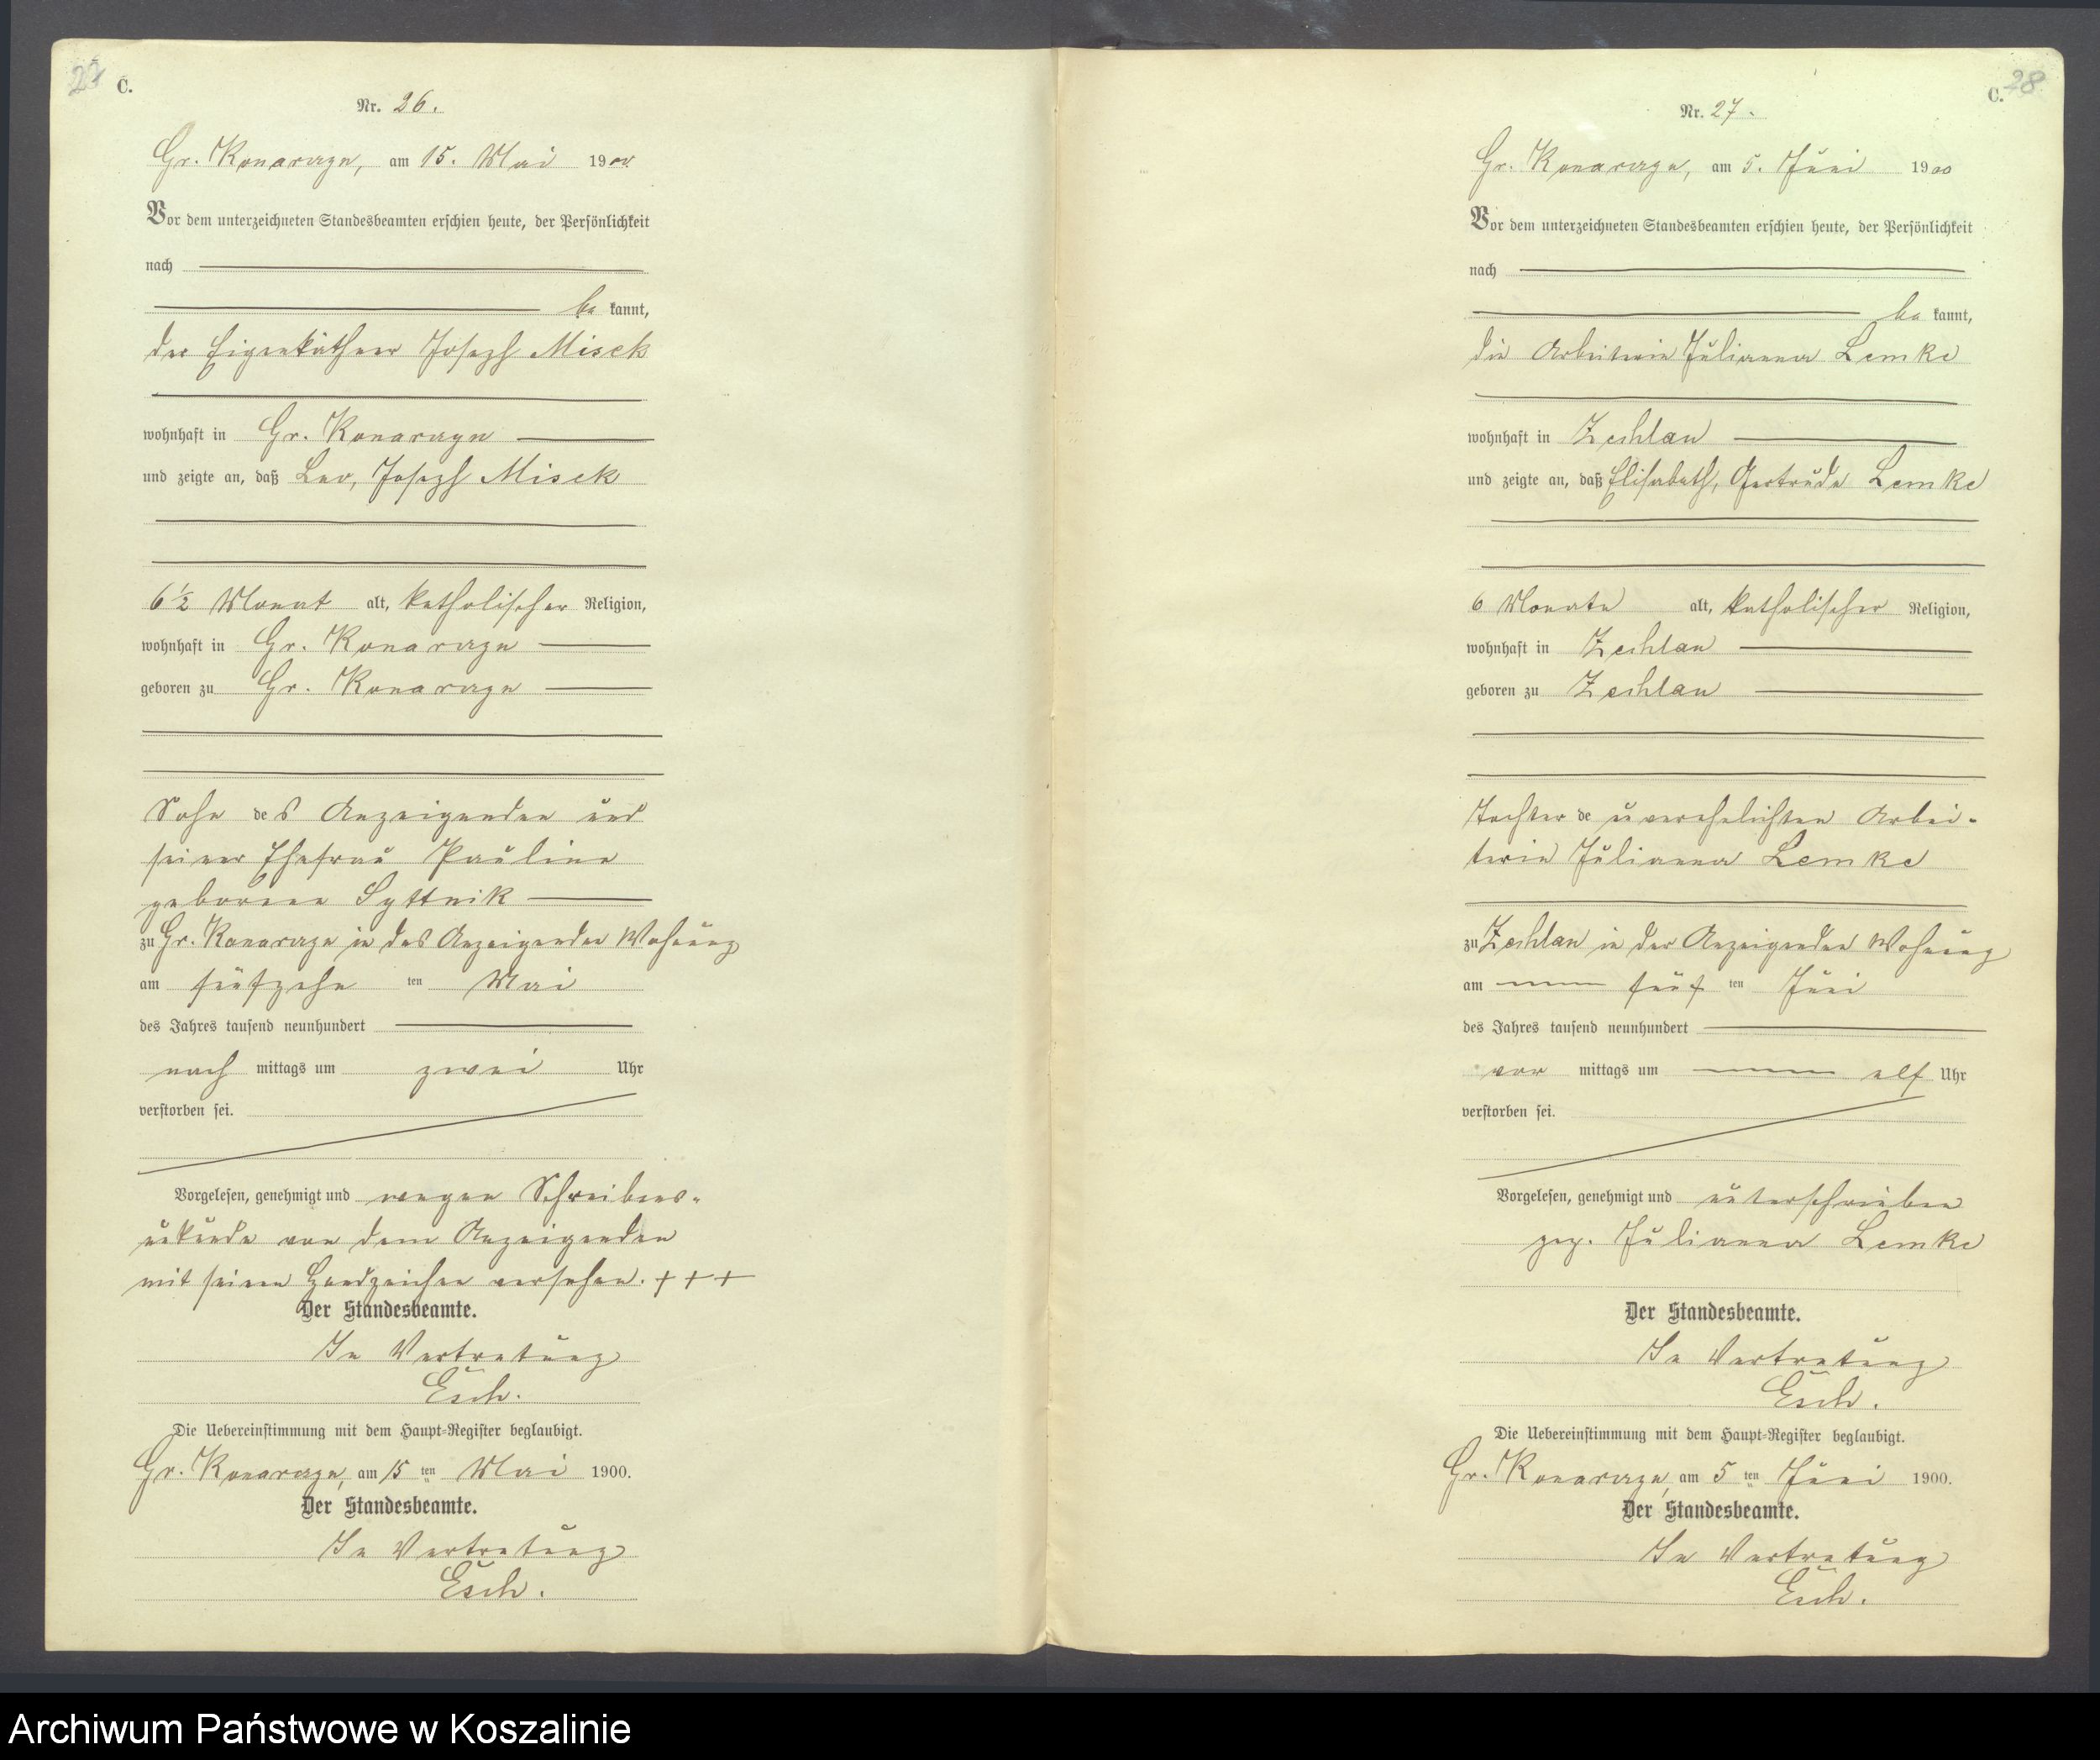 27
C.
Nr. 26.
Gr. Konarczyn, am 15. Mai 1900
Vor dem unterzeichneten Standesbeamten erschien heute, der Persönlichkeit
nach
be kannt,
der Eigenkäthner Joseph Misek
wohnhaft in Gr. Konarczyn
und zeigte an, daß Leo, Joseph Misek
6½ Monat alt, katholischer Religion,
wohnhaft in Gr. Konarczyn
geboren zu Gr. Konarczyn
Sohn des Anzeigenden und
seiner Ehefrau Pauline
geborene Syttnik
zu Gr. Konarczyn in des Anzeigenden Wohnung
am fünfzehn ten Mai
des Jahres tausend neunhundert
nach mittags um zwei Uhr
verstorben sei.
Vorgelesen, genehmigt und wegen Schreibens-
unkunde von dem Anzeigenden
mit seinem Handzeichen versehen. +++
Der Standesbeamte.
In Vertretung
Esch.
Die Uebereinstimmung mit dem Haupt-Register beglaubigt.
Gr. Konarczyn, am 15 ten Mai 1900.
Der Standesbeamte.
In Vertretung
Esch.
28
C.
Nr. 27.
Gr. Konarczyn, am 5. Juni 1900
Vor dem unterzeichneten Standesbeamten erschien heute, der Persönlichkeit
nach
be kannt,
die Arbeiterin Julianna Lemke
wohnhaft in Zechlau
und zeigte an, daß Elisabeth, Gertrude Lemke
6 Monate alt, katholischer Religion,
wohnhaft in Zechlau
geboren zu Zechlau
Tochter de unverehelichten Arbei-
terin Julianna Lemke
zu Zechlau in der Anzeigenden Wohnung
am fünf ten Juni
des Jahres tausend neunhundert
vor mittags um elf Uhr
verstorben sei.
Vorgelesen, genehmigt und unterschrieben
gez. Julianna Lemke
Der Standesbeamte.
In Vertretung
Esch.
Die Uebereinstimmung mit dem Haupt-Register beglaubigt.
Gr. Konarczyn, am 5 ten Juni 1900.
Der Standesbeamte.
In Vertretung
Esch.
Archiwum Państwowe w Koszalinie